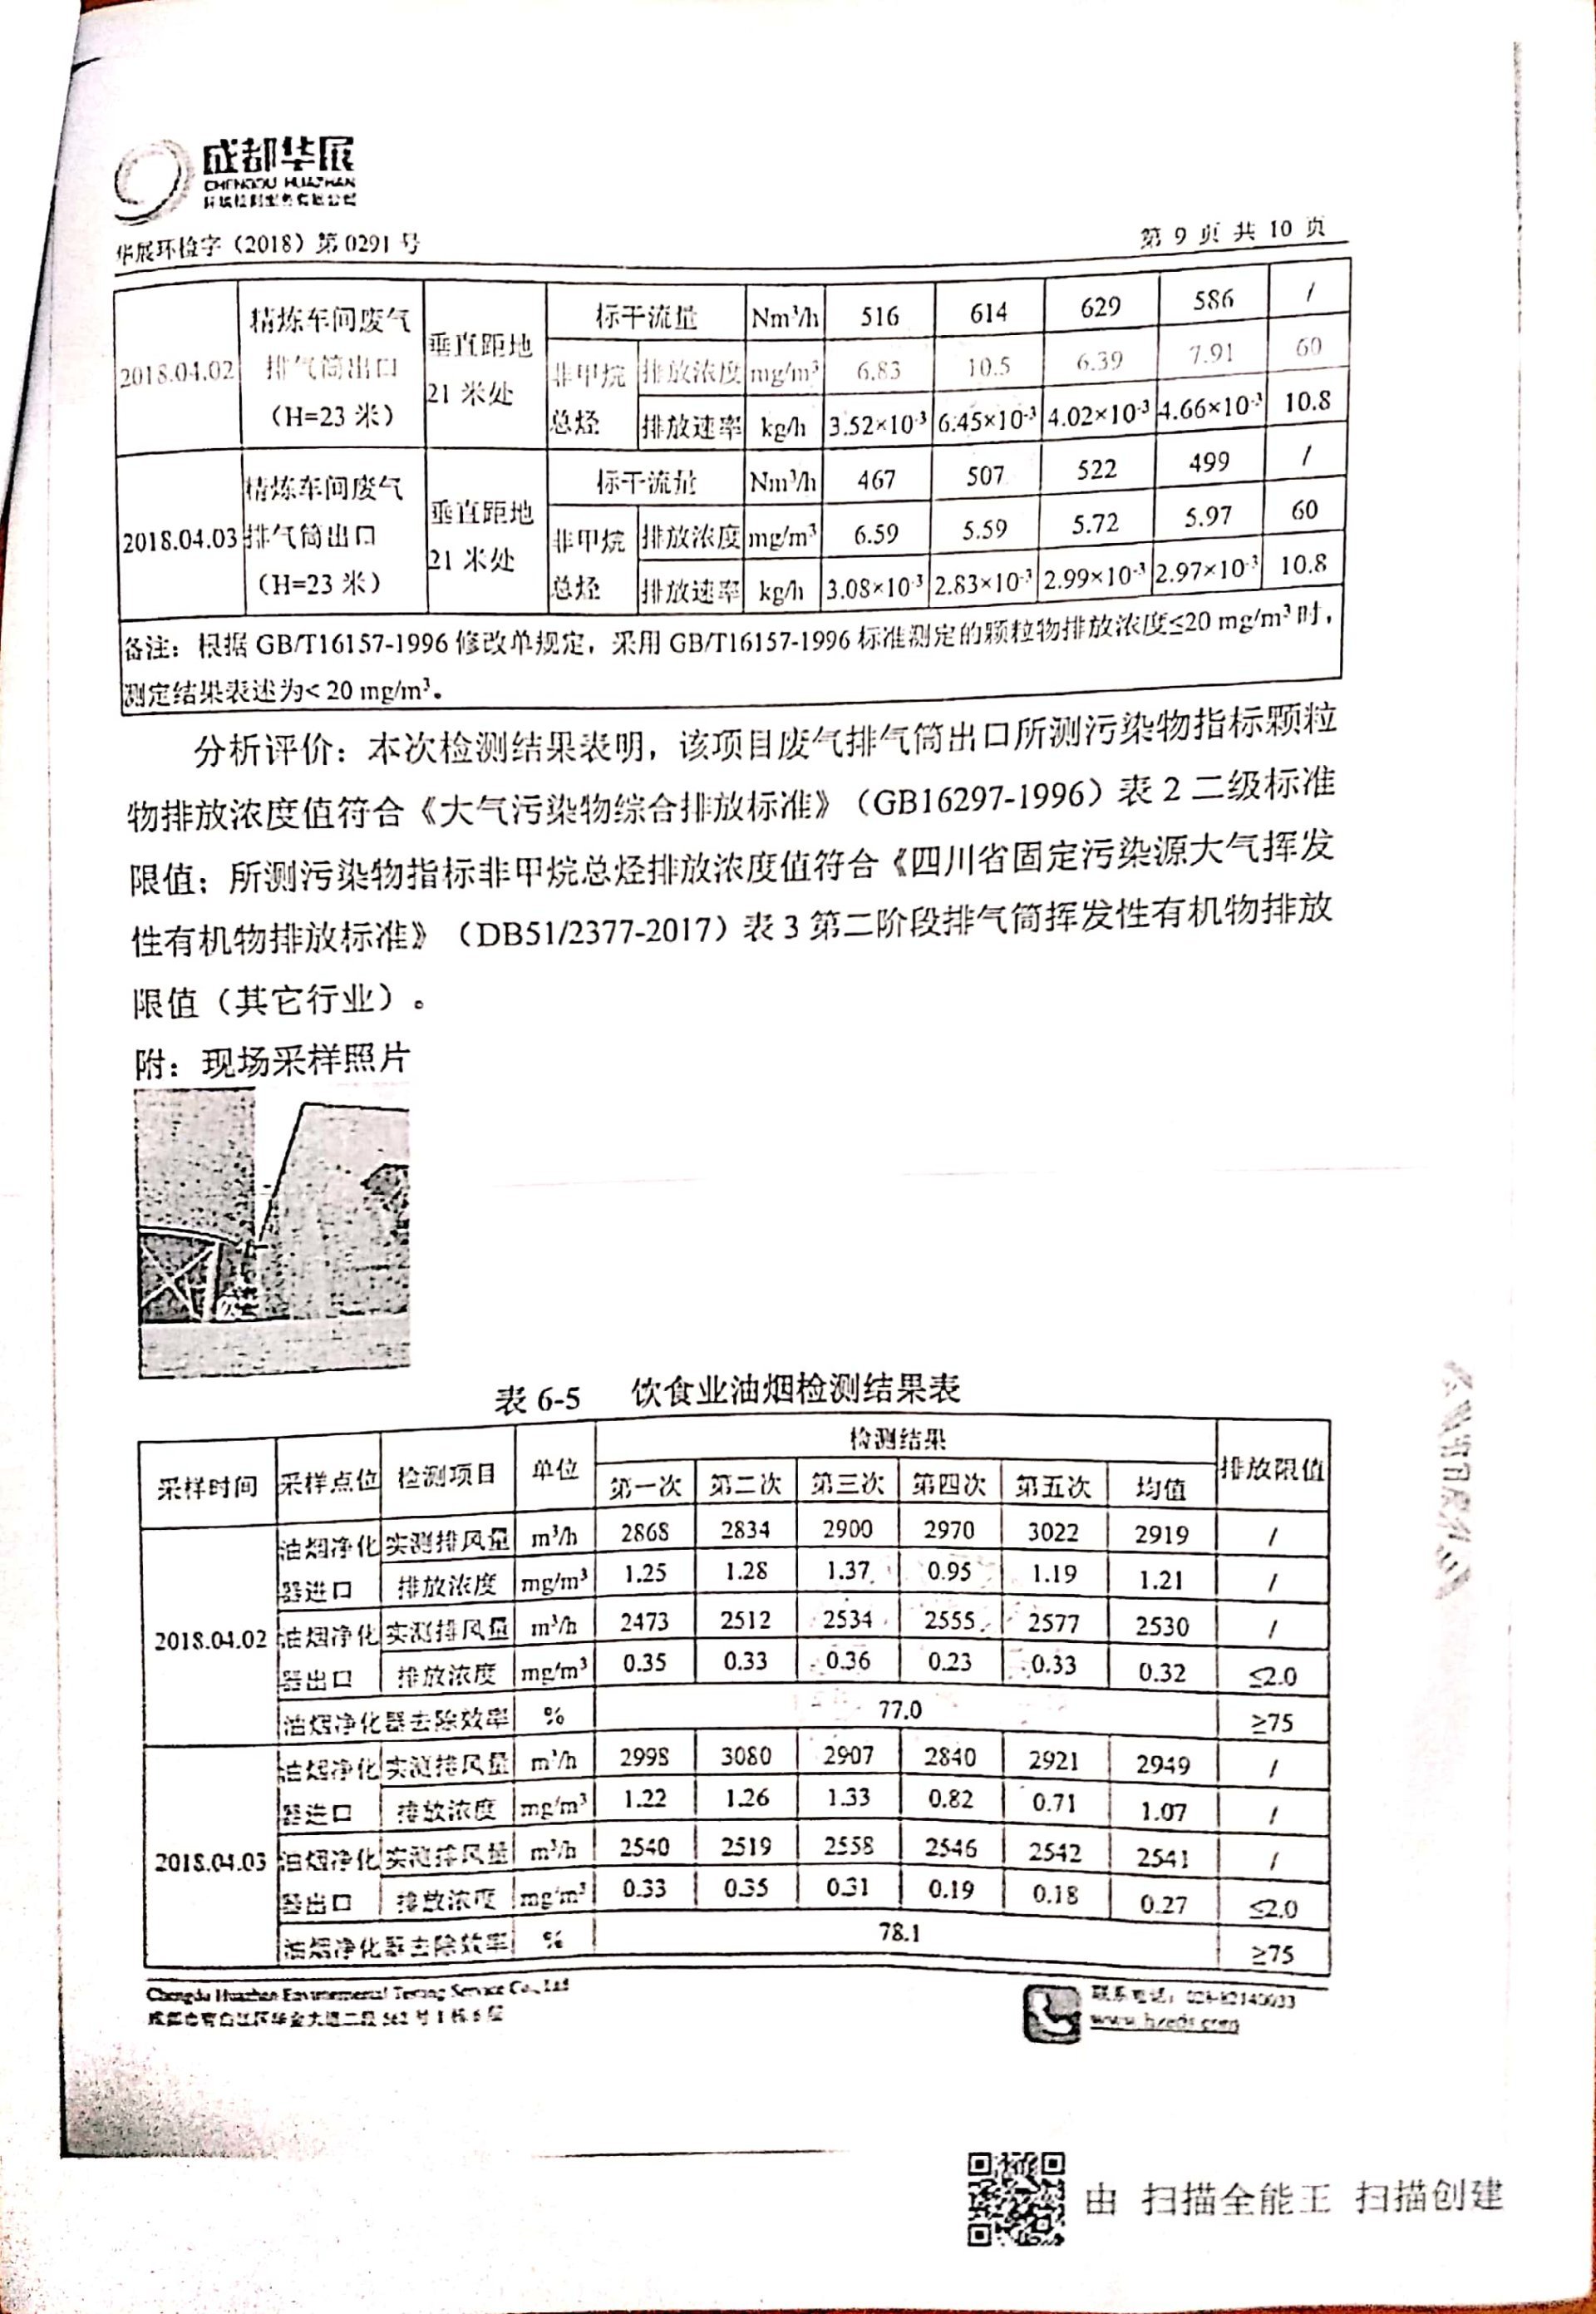 成都华展
CHENGDU HUAZHAN
环境检测服务有限公司
华展环检字（2018）第 0291 号
第 9 页 共 10 页
2018.04.02 精炼车间废气排气筒出口（H=23 米） 垂直距地 21 米处 标干流量 Nm³/h 516 614 629 586 /
非甲烷总烃 排放浓度 mg/m³ 6.83 10.5 6.39 7.91 60
排放速率 kg/h 3.52×10⁻³ 6.45×10⁻³ 4.02×10⁻³ 4.66×10⁻³ 10.8
2018.04.03 精炼车间废气排气筒出口（H=23 米） 垂直距地 21 米处 标干流量 Nm³/h 467 507 522 499 /
非甲烷总烃 排放浓度 mg/m³ 6.59 5.59 5.72 5.97 60
排放速率 kg/h 3.08×10⁻³ 2.83×10⁻³ 2.99×10⁻³ 2.97×10⁻³ 10.8
备注：根据 GB/T16157-1996 修改单规定，采用 GB/T16157-1996 标准测定的颗粒物排放浓度≤20 mg/m³ 时，
测定结果表述为< 20 mg/m³。
分析评价：本次检测结果表明，该项目废气排气筒出口所测污染物指标颗粒
物排放浓度值符合《大气污染物综合排放标准》（GB16297-1996）表 2 二级标准
限值；所测污染物指标非甲烷总烃排放浓度值符合《四川省固定污染源大气挥发
性有机物排放标准》（DB51/2377-2017）表 3 第二阶段排气筒挥发性有机物排放
限值（其它行业）。
附：现场采样照片
表 6-5 饮食业油烟检测结果表
采样时间 采样点位 检测项目 单位 检测结果 排放限值
第一次 第二次 第三次 第四次 第五次 均值
2018.04.02 油烟净化器进口 实测排风量 m³/h 2868 2834 2900 2970 3022 2919 /
排放浓度 mg/m³ 1.25 1.28 1.37 0.95 1.19 1.21 /
油烟净化器出口 实测排风量 m³/h 2473 2512 2534 2555 2577 2530 /
排放浓度 mg/m³ 0.35 0.33 0.36 0.23 0.33 0.32 ≤2.0
油烟净化器去除效率 % 77.0 ≥75
2018.04.03 油烟净化器进口 实测排风量 m³/h 2998 3080 2907 2840 2921 2949 /
排放浓度 mg/m³ 1.22 1.26 1.33 0.82 0.71 1.07 /
油烟净化器出口 实测排风量 m³/h 2540 2519 2558 2546 2542 2541 /
排放浓度 mg/m³ 0.33 0.35 0.31 0.19 0.18 0.27 ≤2.0
油烟净化器去除效率 % 78.1 ≥75
Chengdu Huazhan Environmental Testing Service Co., Ltd
成都市青白江区华金大道二段 562 号 1 栋 6 层
联系电话：
由 扫描全能王 扫描创建